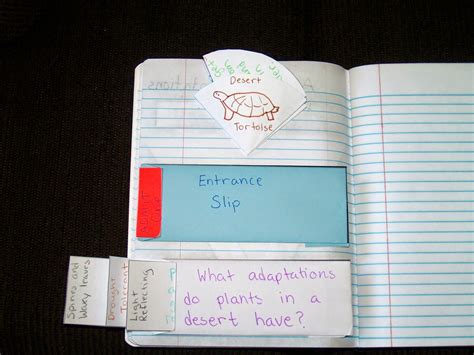 Desert
Tortoise
Entrance
Slip
Spines and
Waxy leaves
Drought
Tolerant
Light
Reflecting
What adaptations
do plants in a
desert have?